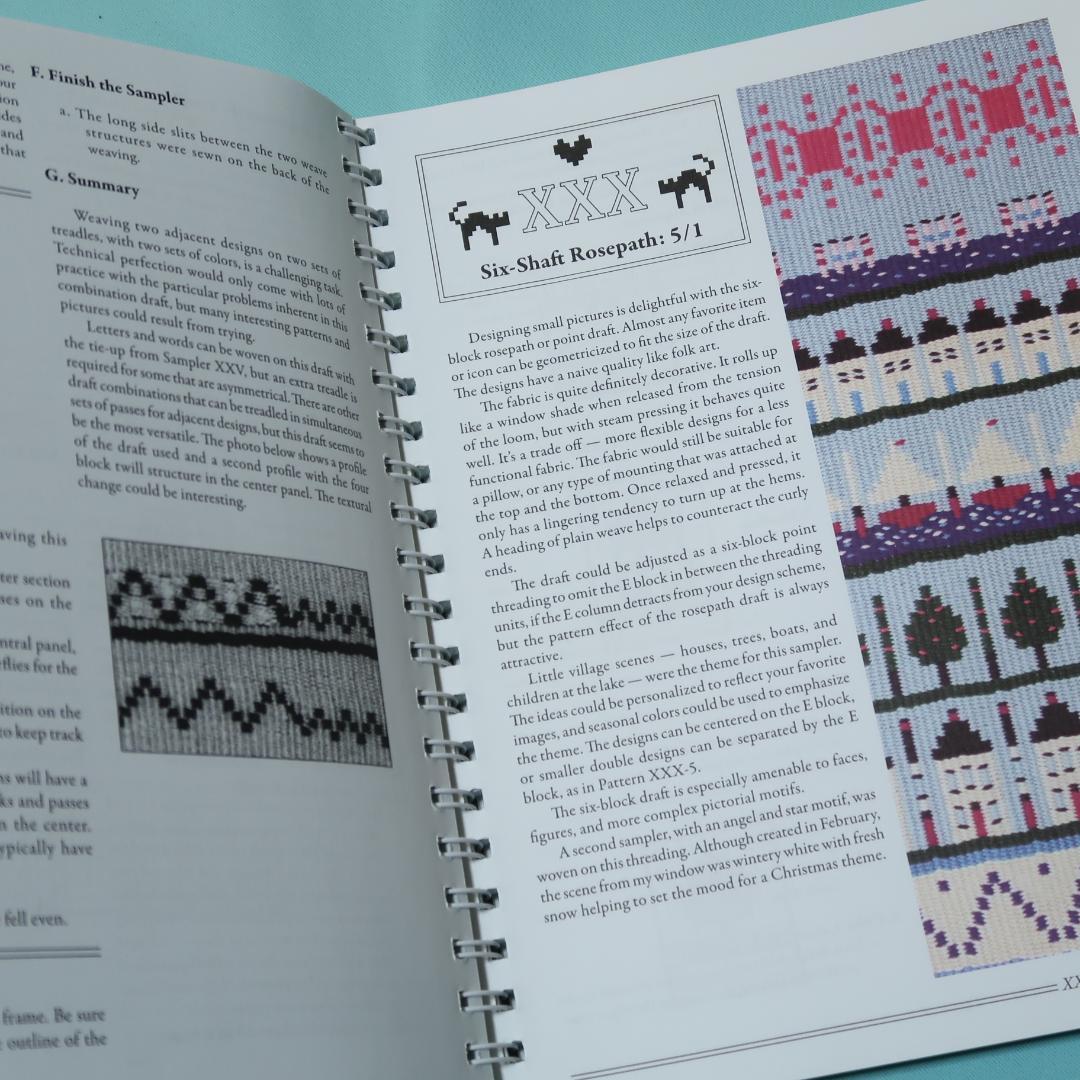 ne,
our
ion
des
and
that
aving this
ter section
ses on the
ntral panel,
flies for the
ition on the
to keep track
ns will have a
ks and passes
n the center.
ypically have
fell even.
frame. Be sure
outline of the
F. Finish the Sampler
a. The long side slits between the two weave
structures were sewn on the back of the
weaving.
G. Summary
Weaving two adjacent designs on two sets of
treadles, with two sets of colors, is a challenging task.
Technical perfection would only come with lots of
practice with the particular problems inherent in this
combination draft, but many interesting patterns and
pictures could result from trying.
Letters and words can be woven on this draft with
the tie-up from Sampler XXV, but an extra treadle is
required for some that are asymmetrical. There are other
draft combinations that can be treadled in simultaneous
sets of passes for adjacent designs, but this draft seems to
be the most versatile. The photo below shows a profile
of the draft used and a second profile with the four
block twill structure in the center panel. The textural
change could be interesting.
XXX
Six-Shaft Rosepath: 5/1
Designing small pictures is delightful with the six-
block rosepath or point draft. Almost any favorite item
or icon can be geometricized to fit the size of the draft.
The designs have a naive quality like folk art.
The fabric is quite definitely decorative. It rolls up
like a window shade when released from the tension
of the loom, but with steam pressing it behaves quite
well. It's a trade off — more flexible designs for a less
functional fabric. The fabric would still be suitable for
a pillow, or any type of mounting that was attached at
the top and the bottom. Once relaxed and pressed, it
only has a lingering tendency to turn up at the hems.
A heading of plain weave helps to counteract the curly
ends.
The draft could be adjusted as a six-block point
threading to omit the E block in between the threading
units, if the E column detracts from your design scheme,
but the pattern effect of the rosepath draft is always
attractive.
Little village scenes — houses, trees, boats, and
children at the lake — were the theme for this sampler.
The ideas could be personalized to reflect your favorite
images, and seasonal colors could be used to emphasize
the theme. The designs can be centered on the E block,
or smaller double designs can be separated by the E
block, as in Pattern XXX-5.
The six-block draft is especially amenable to faces,
figures, and more complex pictorial motifs.
A second sampler, with an angel and star motif, was
woven on this threading. Although created in February,
the scene from my window was wintery white with fresh
snow helping to set the mood for a Christmas theme.
XX